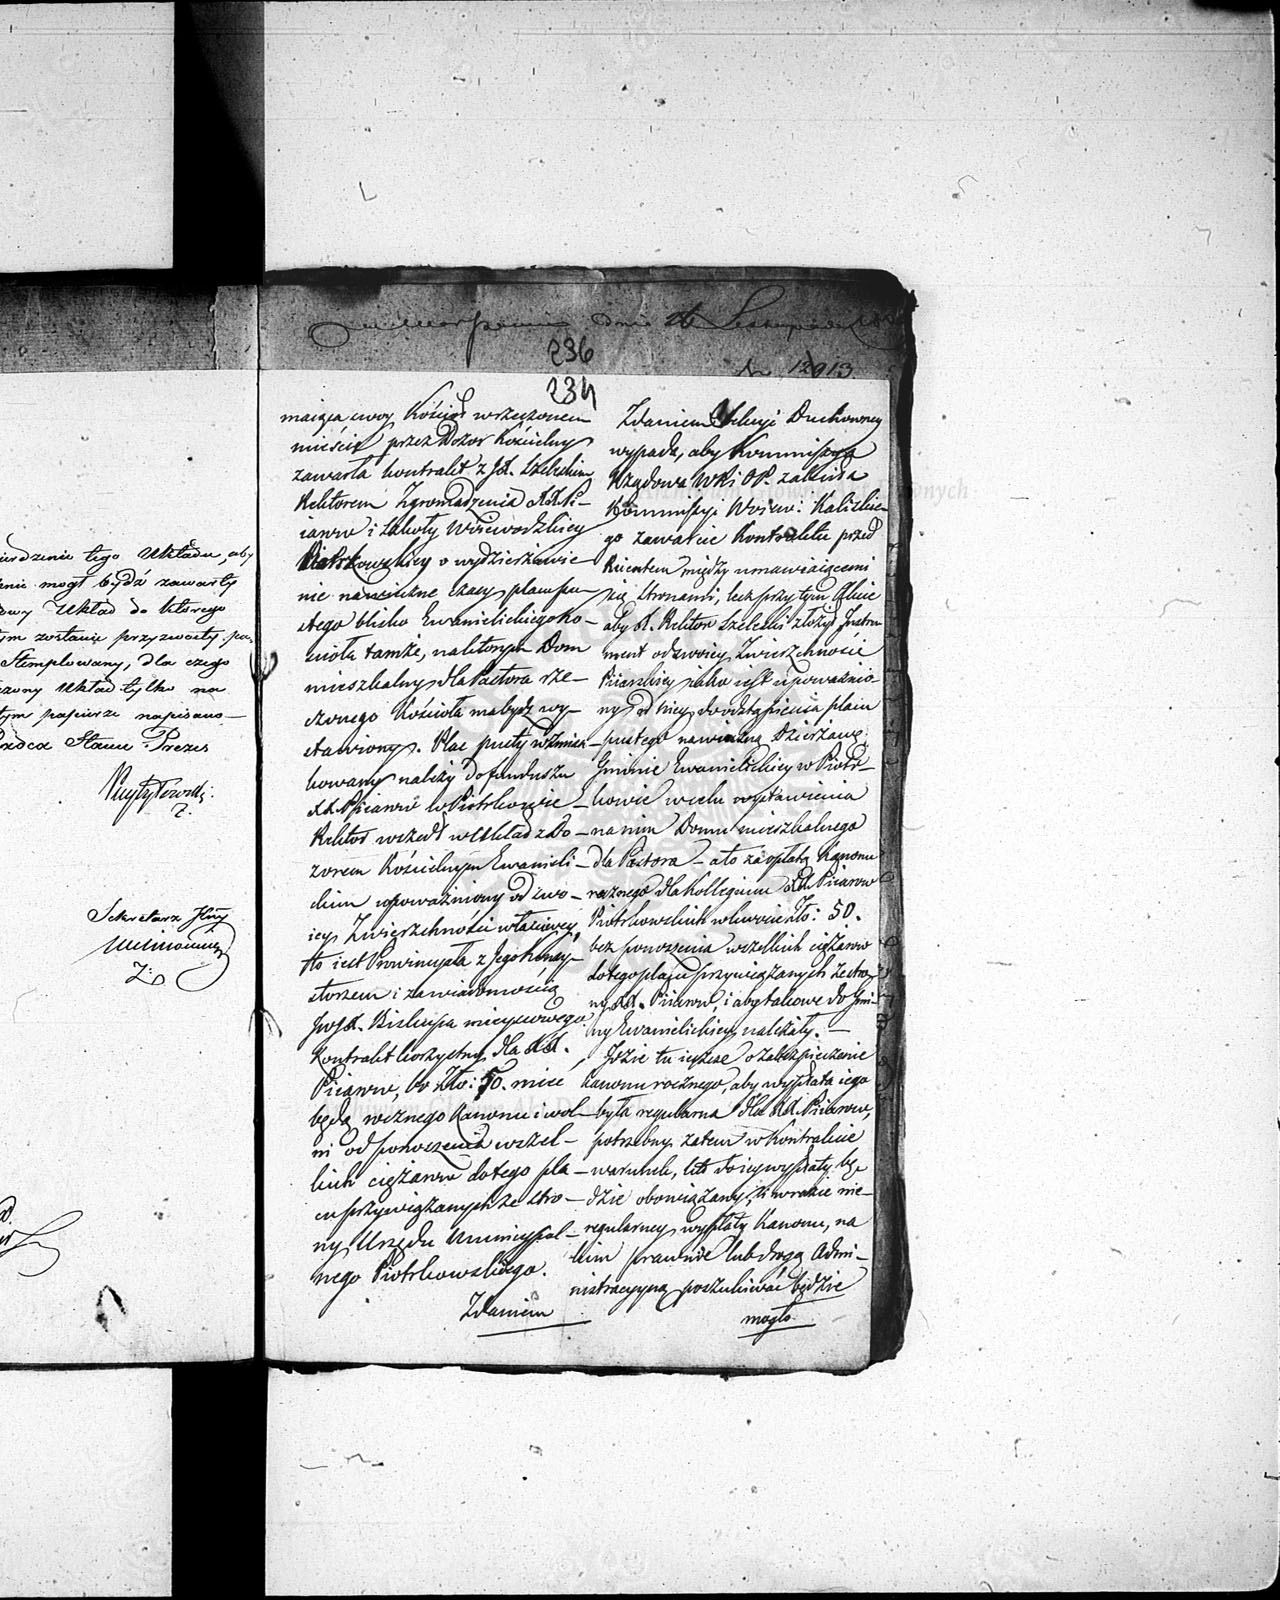 ierdzenie tego Układu, aby
mogł bydź zawarty
Układ do którego
zostanie przyzwoity pa-
Stemplowany, dla czego
Układ tylko na
tym papierze napisano
Radca Stanu Prezes
Sekretarz
dnia Listopada
236
234
No 12913
maiąca swoy Kościoł wrzeczonem
mieście przez Dozor Kościelny
zawarła kontrakt z JX. Szeleckim
Rektorem Zgromadzenia XX. Pi-
iarow i Szkoły Woiewodzkiey
Piotrkowskiey o wydzierżawie-
nie na wieczne czasy placu pu-
stego blisko Ewanielickiego Ko-
ścioła tamże, na którym Dom
mieszkalny dla Pastora rze-
czonego Kościoła ma bydz wy-
stawiony. Plac pusty wzmian-
kowany należy do funduszu
XX. Piiarow w Piotrkowie
Rektor wszedł w Układ z Do-
zorem Kościelnym Ewanieli-
ckim upoważniony od swo-
iey Zwierzchności właściwey,
to iest Prowincyała z Jego Konsy-
storzem i za wiadomością
JWJX. Biskupa mieyscowego
Kontrakt korzystny dla XX.
Piiarow, bo Zło: 50. mieć
będą rocznego Kanonu i wol-
ni od ponoszenia wszel-
kich ciężarow do tego pla-
cu przywiązanych ze stro-
ny Urzędu Municypal-
nego Piotrkowskiego.
Zdaniem
Zdaniem Sekcyi Duchowney
wypada, aby Kommissya
Rządowa WR i OP. zaleciła
Kommissyi Woiew: Kaliskie-
go zawarcie Kontraktu przed
Reientem między umawiaiącemi
się Stronami, lecz przy tym Akcie
aby X. Rektor Szelecki złożył Instru
ment od swoiey Zwierzchności
Piiarskiey jako iest upoważnio-
ny od niey do odstąpienia placu
pustego na wieczną Dzierżawę
Gminie Ewanielickiey w Piotr-
kowie w celu wystawienia
na nim Domu mieszkalnego
dla Pastora – a to za opłatą Kanonu
rocznego dla Kollegium XX. Piiarow
Piotrkowskich w kwocie Zło: 50.
bez ponoszenia wszelkich ciężarow
do tego placu przywiązanych ze stro-
ny XX. Piiarow, i aby takowe do Gmi-
ny Ewanielickiey należały. –
Idzie tu ieszcze o zabezpieczenie
kanonu rocznego, aby wypłata iego
była regularna dla XX. Piiarow,
potrzebny zatem w Kontrakcie
warunek, kto do iey wypłaty bę-
dzie obowiązany, i w razie nie-
regularney wypłaty Kanonu, na
kim prawnie lub drogą Admi-
nistracyyną poszukiwać będzie
mogło.